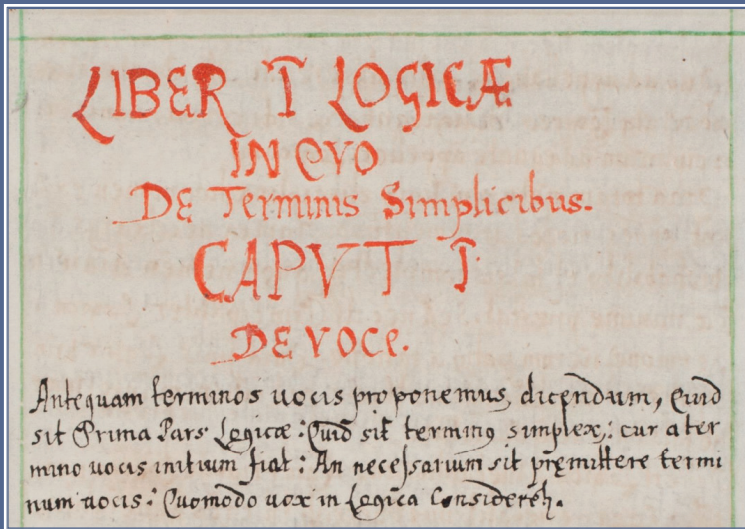 LIBER I LOGICÆ
IN QVO
DE Terminis Simplicibus.
CAPVT I
DE VOCE.
Antequam terminos uocis proponemus, dicendum, Quid
sit Prima Pars Logicæ: Quid sit terminus simplex: cur a ter
mino uocis initium fiat: An necessarium sit pręmittere termi
num uocis: Quomodo uox in Logica Consideret̃.